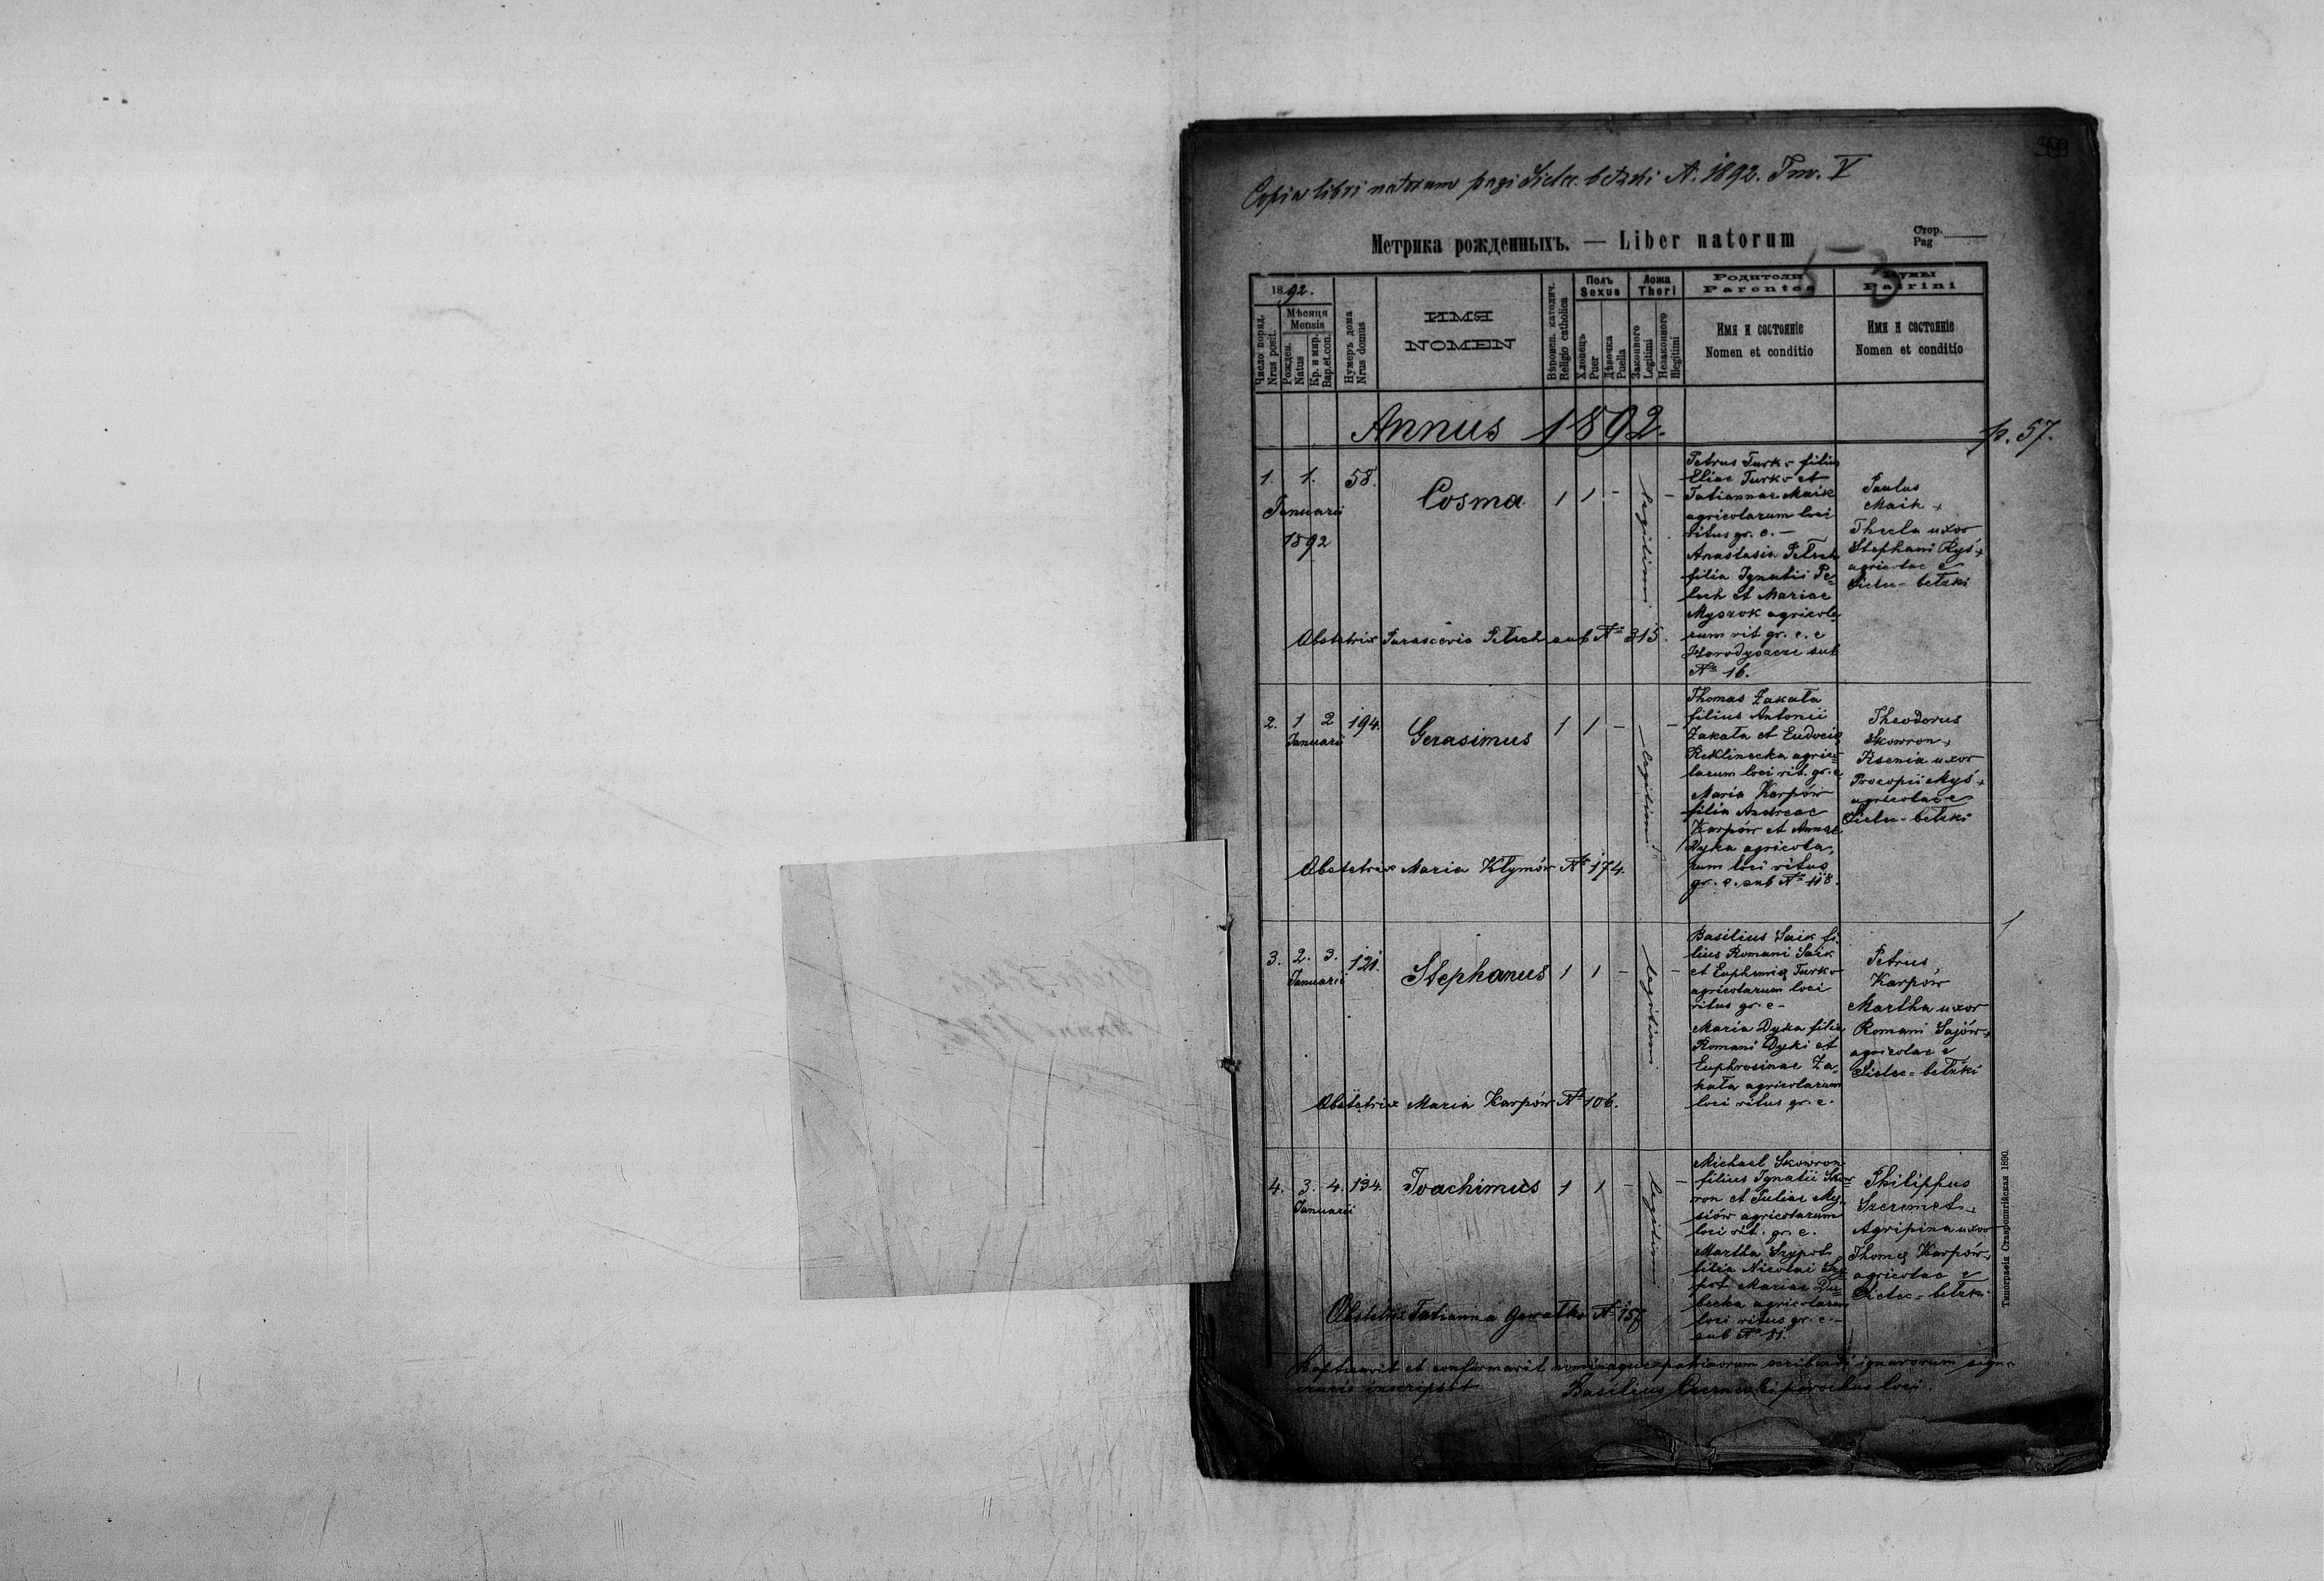 Copia libri natorum pagi Sielec bełzki A. 1892. Tm. V
Метрика рожденныхъ. — Liber natorum
Стор.
Pag
1892.
Число поряд.
Nrus posit.
Мѣсяця
Mensis
Рожден.
Natus
Кр. и мир.
Bap. et. con.
Нумеръ дома
Nrus domus
ИМЯ
NOMEN
Вѣроисп. католич.
Religio catholica
Полъ
Sexus
Хлопецъ
Puer
Дѣвочка
Puella
Ложа
Thori
Законного
Legitimi
Незаконного
Illegitimi
Родители
Parentes
Имя и состояніе
Nomen et conditio
Кумы
Patrini
Имя и состояніе
Nomen et conditio
Annus 1892.
p. 57.
1. 1. 58.
Januarii
1892
Cosma
1 1 - legitimi -
Petrus Turko filius
Eliae Turko et
Tatiannae Maik
agricolarum loci
ritus gr. c. —
Anastasia Pełech
filia Ignatii Pe=
lech et Mariae
Myszok agricola
rum rit gr. c. e
sub
№ 16.
Paulus
Maik +
Thecla uxor
Stephani Ryś +
agricolae e
Sielec-bełzki
Obstetrix Parascevia Pełech sub № 315.
2. 1 2 194.
Januarii
Gerasimus
1 1 - legitimi -
Thomas Zakała
filius Antonii
Zakała et Eudociae
Reklinecka agrico=
larum loci rit. gr. c.
Maria Karpów
filia Andreae
Karpów et Annae
Dyka agricola,
rum loci ritus
gr. c. sub № 118.
Theodorus
Skowron +
Ksenia uxor
Procopii Myś +
agricolae e
Sielec-bełzki
Obstetrix Maria Kłymów № 174.
3. 2. 3. 121.
Januarii
Stephanus
1 1 - legitimi -
Basilius Saik fi=
lius Romani Saik
et Euphemiae Turko
agricolarum loci
ritus gr. c -
Maria Dyka filia
Romani Dyki et
Euphrosinae Za,
kała agricolarum
loci ritus gr. c.
Petrus
Karpów
Martha uxor
Romani Sajów +
agricolae e
Sielec=bełzki
Obstetrix Maria Karpów № 106.
4. 3. 4. 134.
Januarii
Joachimus
1 1 - legitimi -
Michael Skowron
filius Ignatii Skow=
ron et Juliae My,
siów agricolarum
loci rit. gr. c.
Martha Szypot
filia Nicolai Szy=
pot Mariae Du=
becka agricolarum
loci ritus gr. c. -
sub № 11.
Philippus
Szeremet +
Agripina uxor
Thomae Karpów +
agricolae e
Sielec=bełzki
Obstetrix Tatianna Gawałko № 157
Baptisavit et confirmavit nominaque patrinorum scribendi ignarorum sign.
crucis inscripsit Basilius parochus loci.
Типографія Ставропигійская 1890.